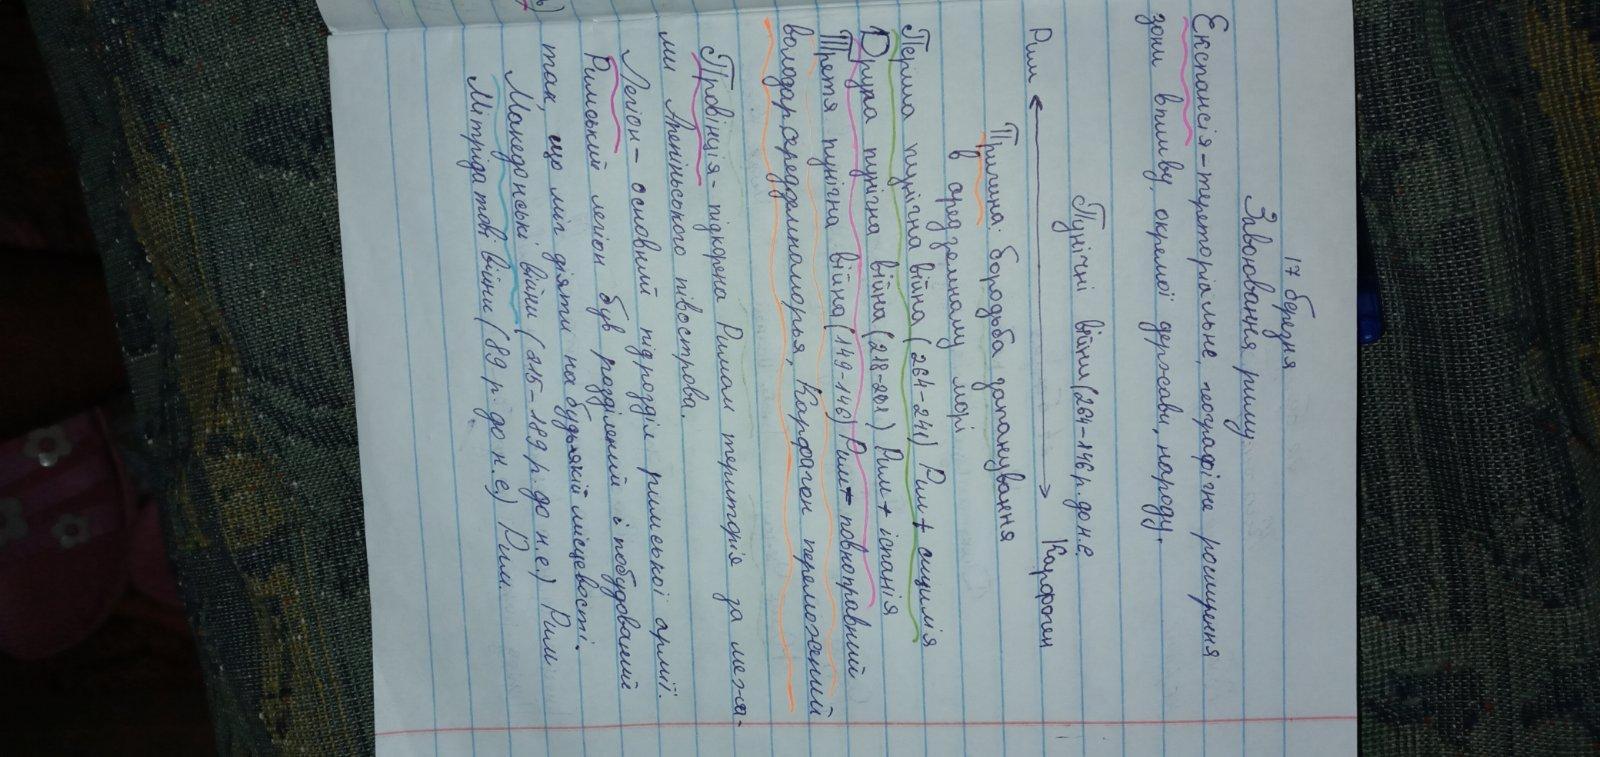 17 березня
Завоювання риму.
Експансія - териториальне, географічне розширення
зони впливу окремої держави, народу.
Пунічні війни (264-146 р. до н.е
Рим ⟵⟶ Карфаген
Причина: бородьба за панування
в середземному морі
Перша пунічна війна (264-241) Рим + сицилія
Друга пунічна війна (218-201) Рим + іспанія
Третя пунічна війна (149-146) Рим - повноправний
володар середземномор'я, Карфаген переможений
Провінція - підкорена Римом територія за межа-
ми Апенінського півострова.
Легіон - основний підрозділ римської армії.
Римський легіон був розділений і побудований
так, що міг діяти на будь-якій місцевості.
Македонські війни (215-169 р. до н.е.) Рим
Мітрідатові війни (89 р. до н.е.) Рим.